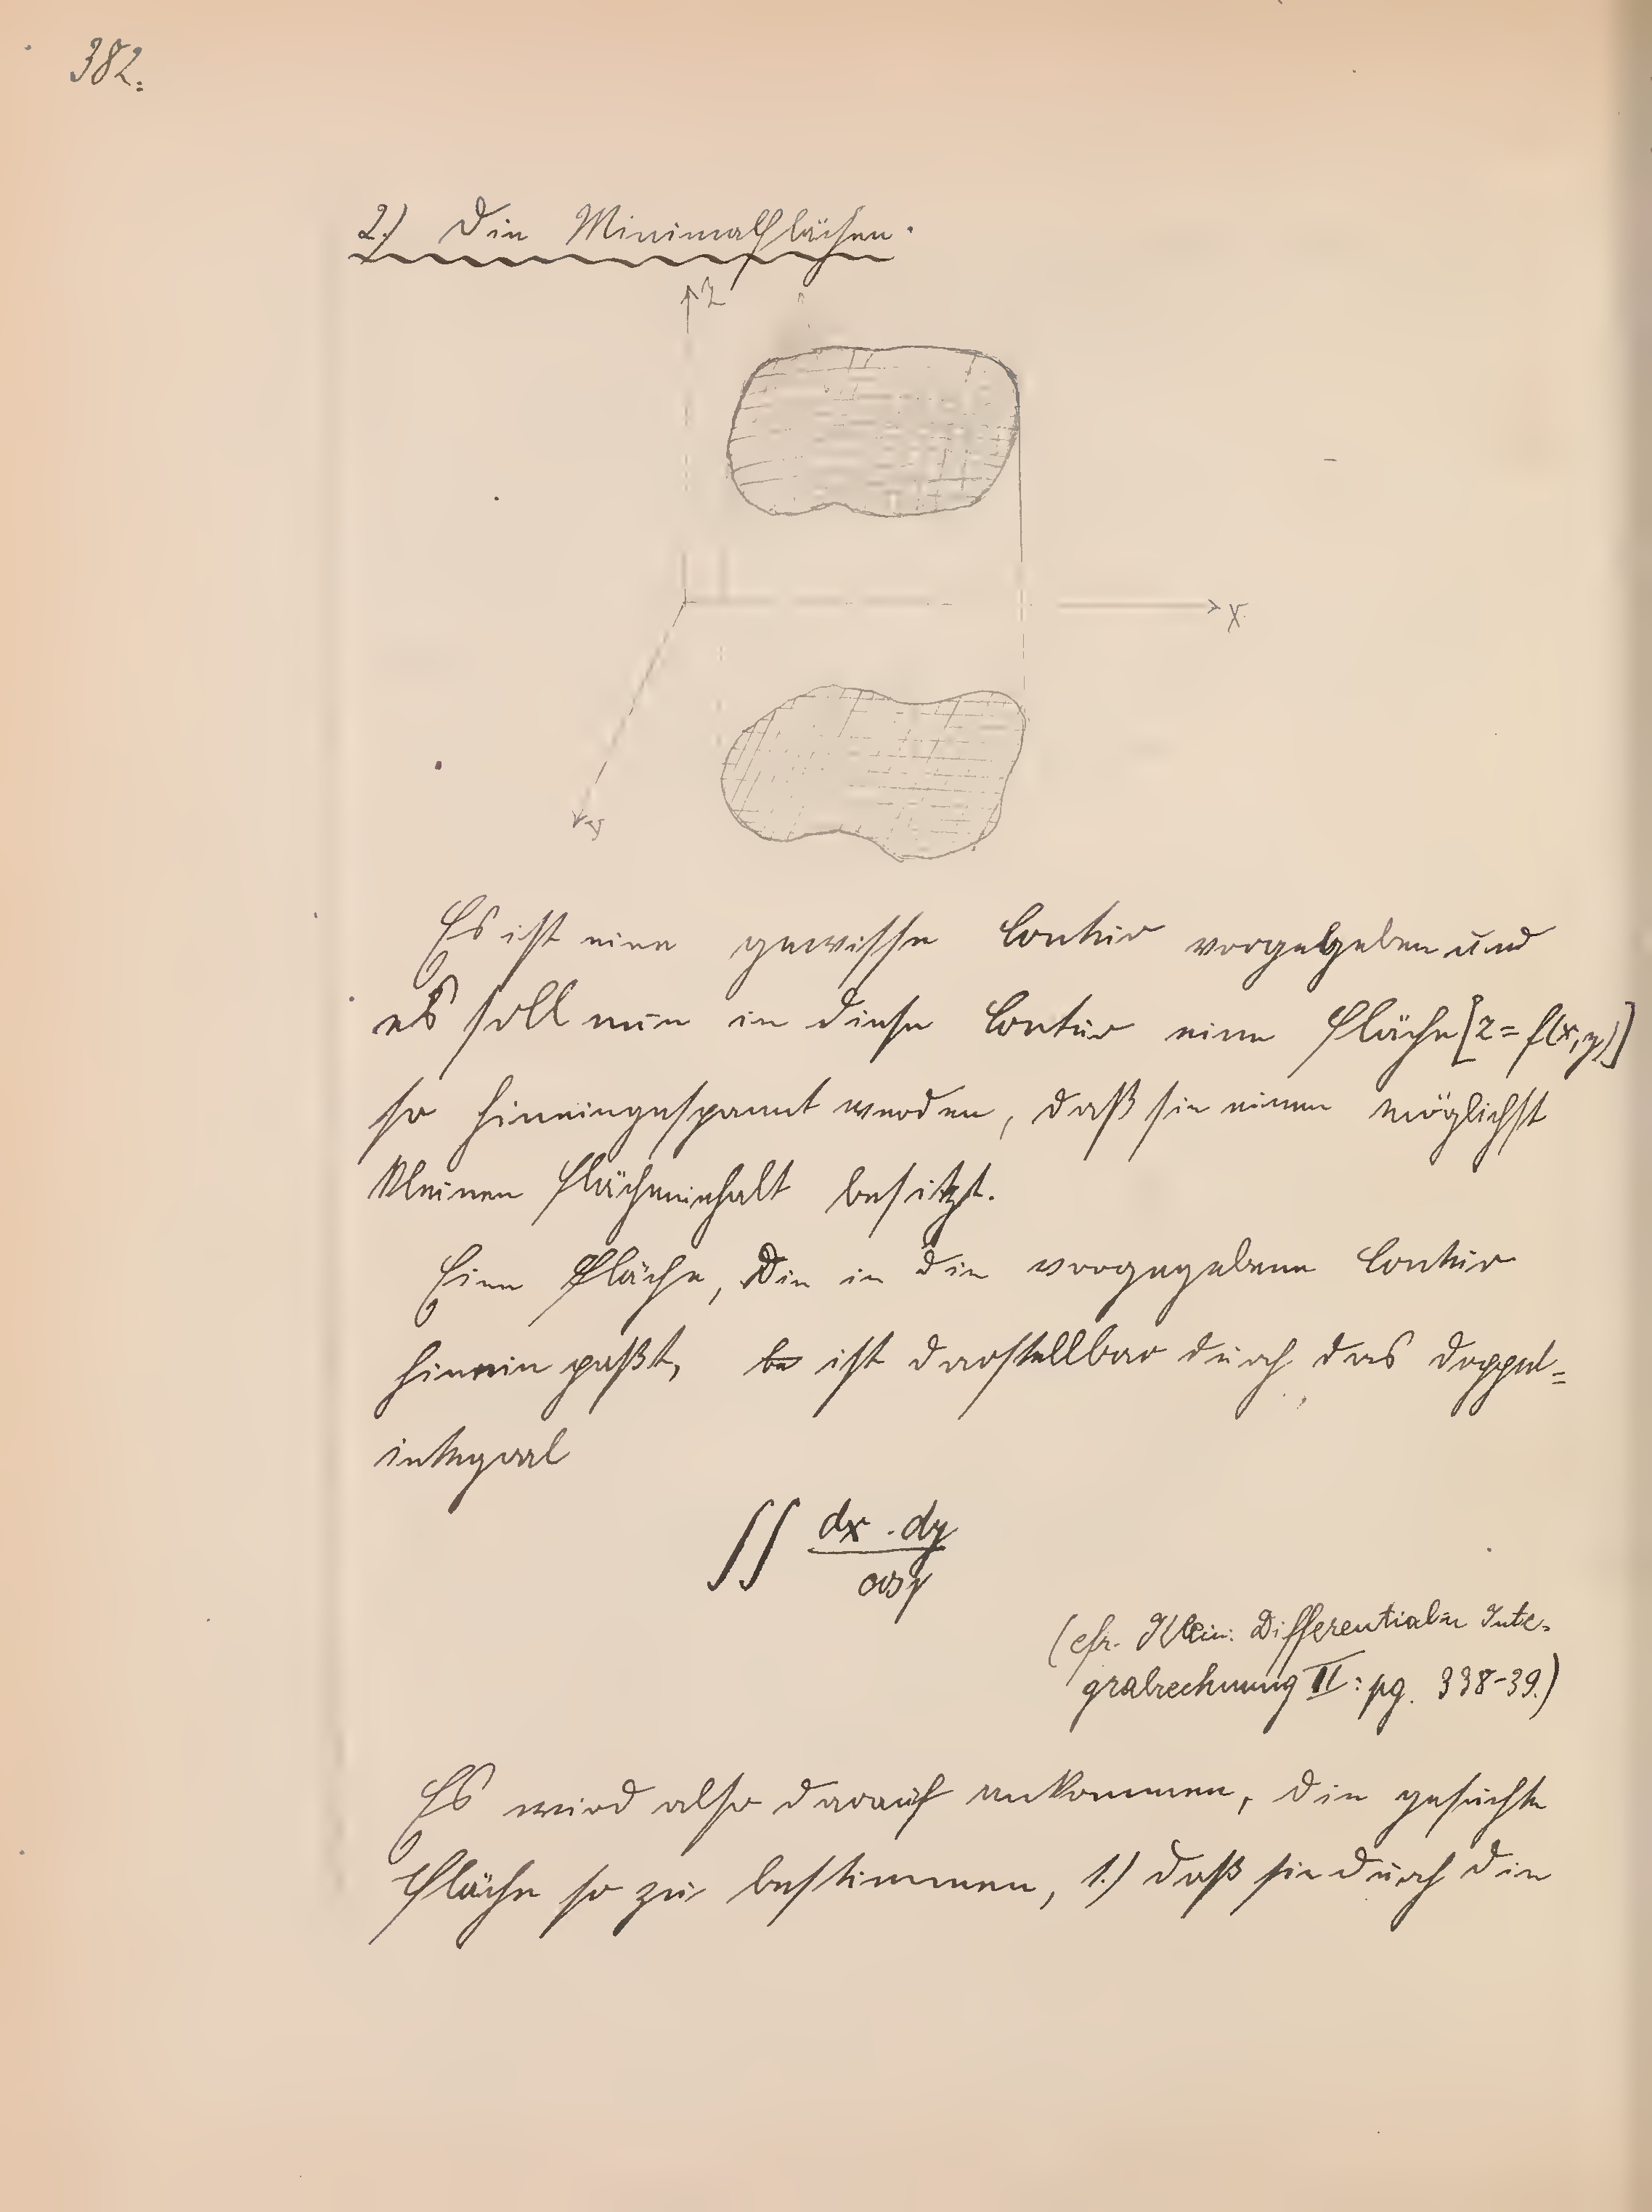 382.
2.) Die Minimalflächen.
z
x
y
Es ist eine gewisse Contur vorgegeben und
es soll nun in diese Contur eine Fläche [z = f(x,y)]
so hineingespannt werden, daß sie einen möglichst
kleinen Flächeninhalt besitzt.
Eine Fläche, die in die vorgegebene Contur
hinein paßt, be ist darstellbar durch das Doppel=
integral
∫∫ dx · dy / cos γ
(cfr. Klein: Differential- u Inte-
gralrechnung II: pg. 338-39.)
Es wird also darauf ankommen, die gesuchte
Fläche so zu bestimmen, 1.) daß sie durch die